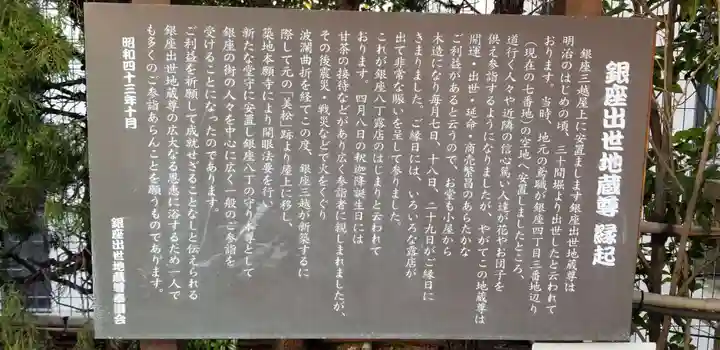 銀座出世地蔵尊 縁起
銀座三越屋上に安置します銀座出世地蔵尊は
明治のはじめの頃、三十間堀より出世したと云われて
おります。当時、地元の鳶職が銀座四丁目三番地辺り
(現在の七番地)の空地へ安置しましたところ、
道行く人々や近隣の信心篤い人達が花やお団子を
供え参詣するようになりましたが、やがてこの地蔵尊は
開運・出世・延命・商売繁昌のあらたかな
ご利益があると云うので、お堂も小屋から
木造になり毎月七日、十八日、二十九日がご縁日に
きまりました。ご縁日には、いろいろな露店が
出て非常な賑いを呈して参りました。
これが銀座八丁露店のはじまりと云われて
おります。四月八日の釈迦降誕生日には
甘茶の接待などがあり広く参詣者に親しまれましたが、
その後震災・戦災などで火をくぐり
波瀾曲折を経てこの度、銀座三越が新築するに
際して元の「美松」跡より屋上に移し、
築地本願寺により開眼法要を行い
新たな堂宇に安置し銀座八丁の守り本尊として
銀座の街の人々を中心に広く一般のご参詣を
受けることになったのであります。
ご利益を祈願して成就せざることなしと伝えられる
銀座出世地蔵尊の広大なる慈恵に浴するため一人で
も多くのご参詣あらんことを願うものであります。
昭和四十三年十月
銀座出世地蔵尊委員会